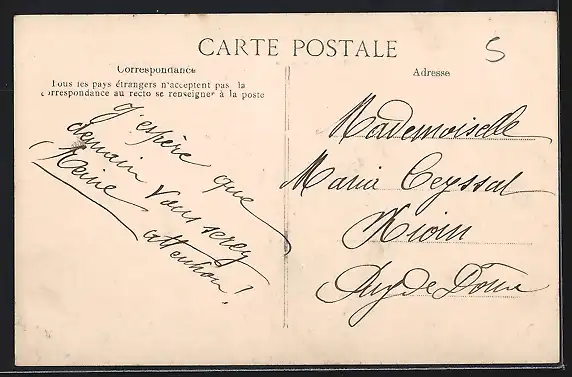 CARTE POSTALE
S
Correspondance
Tous les pays étrangers n'acceptent pas la
correspondance au recto se renseigner à la poste
J'espère que
demain vous serez
Reine
attention!
Adresse
Mademoiselle
Maria Ceyssat
Riom
Puy de Dôme